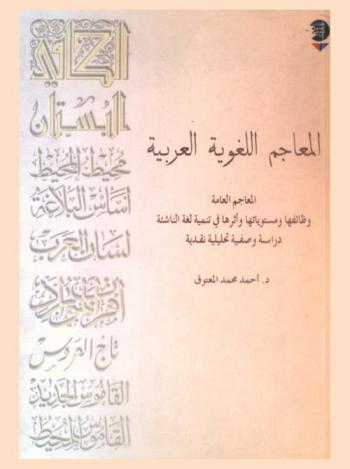 المعاجم اللغوية العربية
المعاجم العامة
وظائفها ومستوياتها وأثرها في تنمية لغة الناشئة
دراسة وصفية تحليلية نقدية
د. أحمد محمد المعتوق
الكافي
البستان
محيط المحيط
أساس البلاغة
لسان العرب
أقرب الموارد
تاج العروس
القاموس الجديد
القاموس المحيط